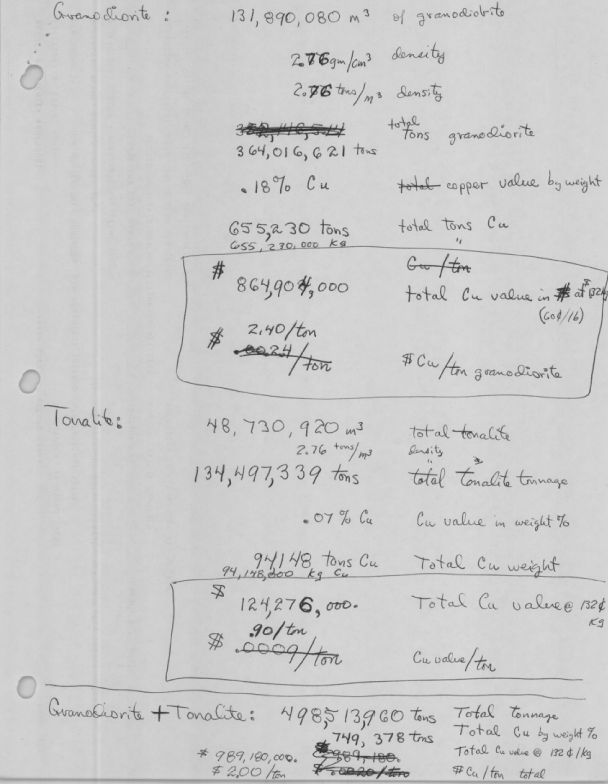 Granodiorite : 131,890,080 m³ of granodiorite
2.76 gm/cm³ density
2.76 tons/m³ density
total
tons granodiorite
364,016,621 tons
.18% Cu total copper value by weight
655,230 tons total tons Cu
655,230,000 Kg "
Cu/ton
$ 864,904,000 total Cu value in $ at $1.32/kg
(60¢/lb)
$ 2.40/ton
.0024/ton $ Cu/ton granodiorite
Tonalite: 48,730,920 m³ total tonalite
2.76 tons/m³ density
134,497,339 tons total tonalite tonnage
.07% Cu Cu value in weight %
94148 tons Cu Total Cu weight
94,148,000 Kg Cu
$ 124,276,000. Total Cu value @ 132¢
Kg
.90/ton
$ .0009/ton Cu value/ton
Granodiorite + Tonalite: 498,513,960 tons Total tonnage
749,378 tons Total Cu by weight %
$ 989,180,000. $ 989,180. Total Cu value @ 132¢/kg
$ 2.00/ton $ .0020/ton $ Cu/ton total